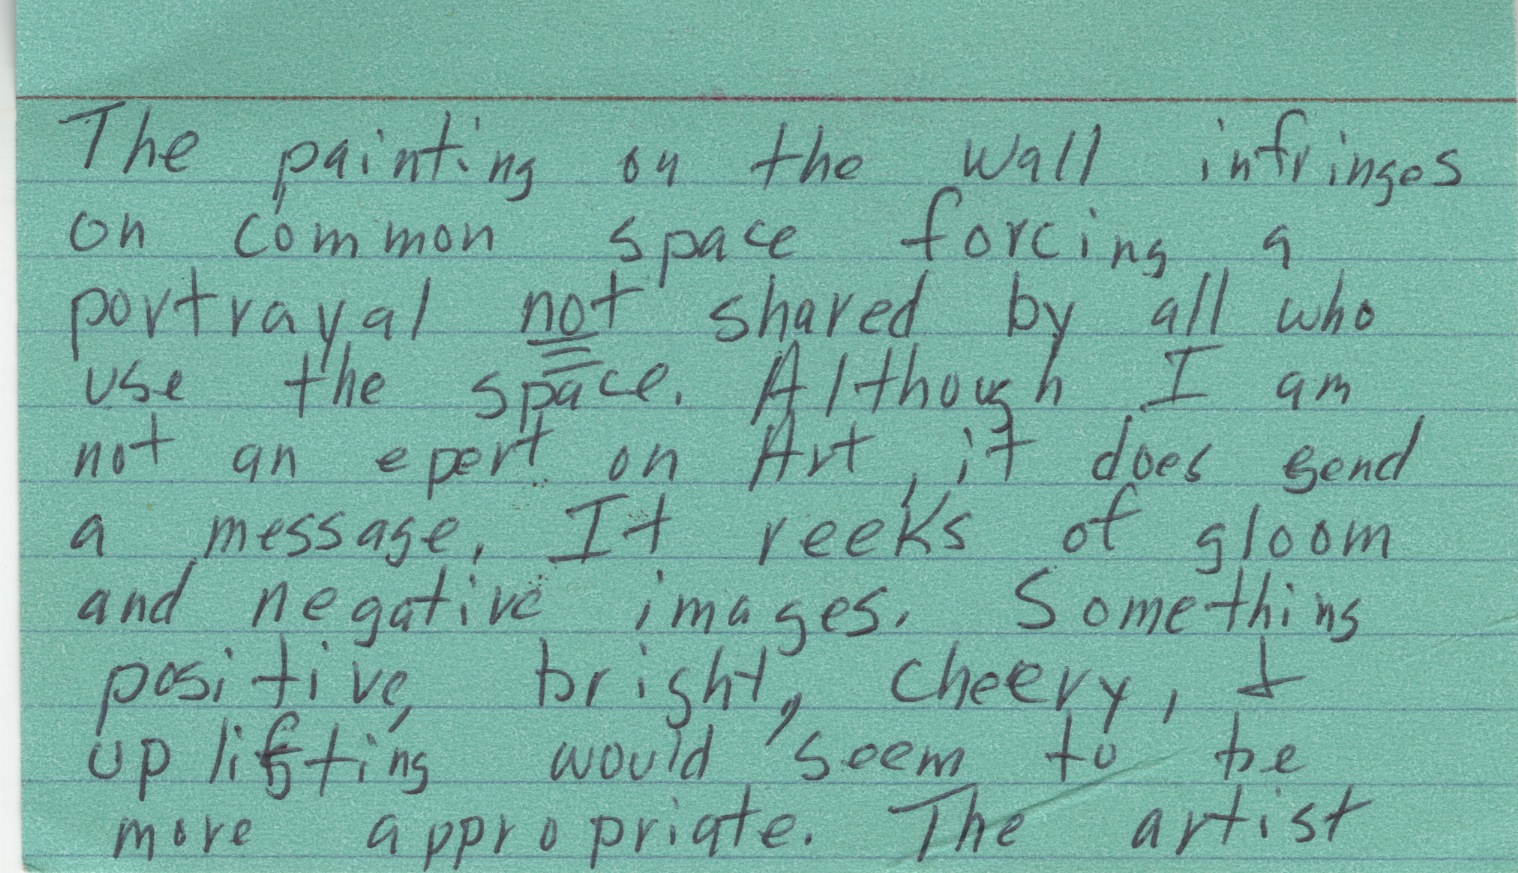 The painting on the wall infringes
on common space forcing a
portrayal not shared by all who
use the space. Although I am
not an epert on Art, it does send
a message. It reeks of gloom
and negative images. Something
positive, bright, cheery, &
uplifting would seem to be
more appropriate. The artist